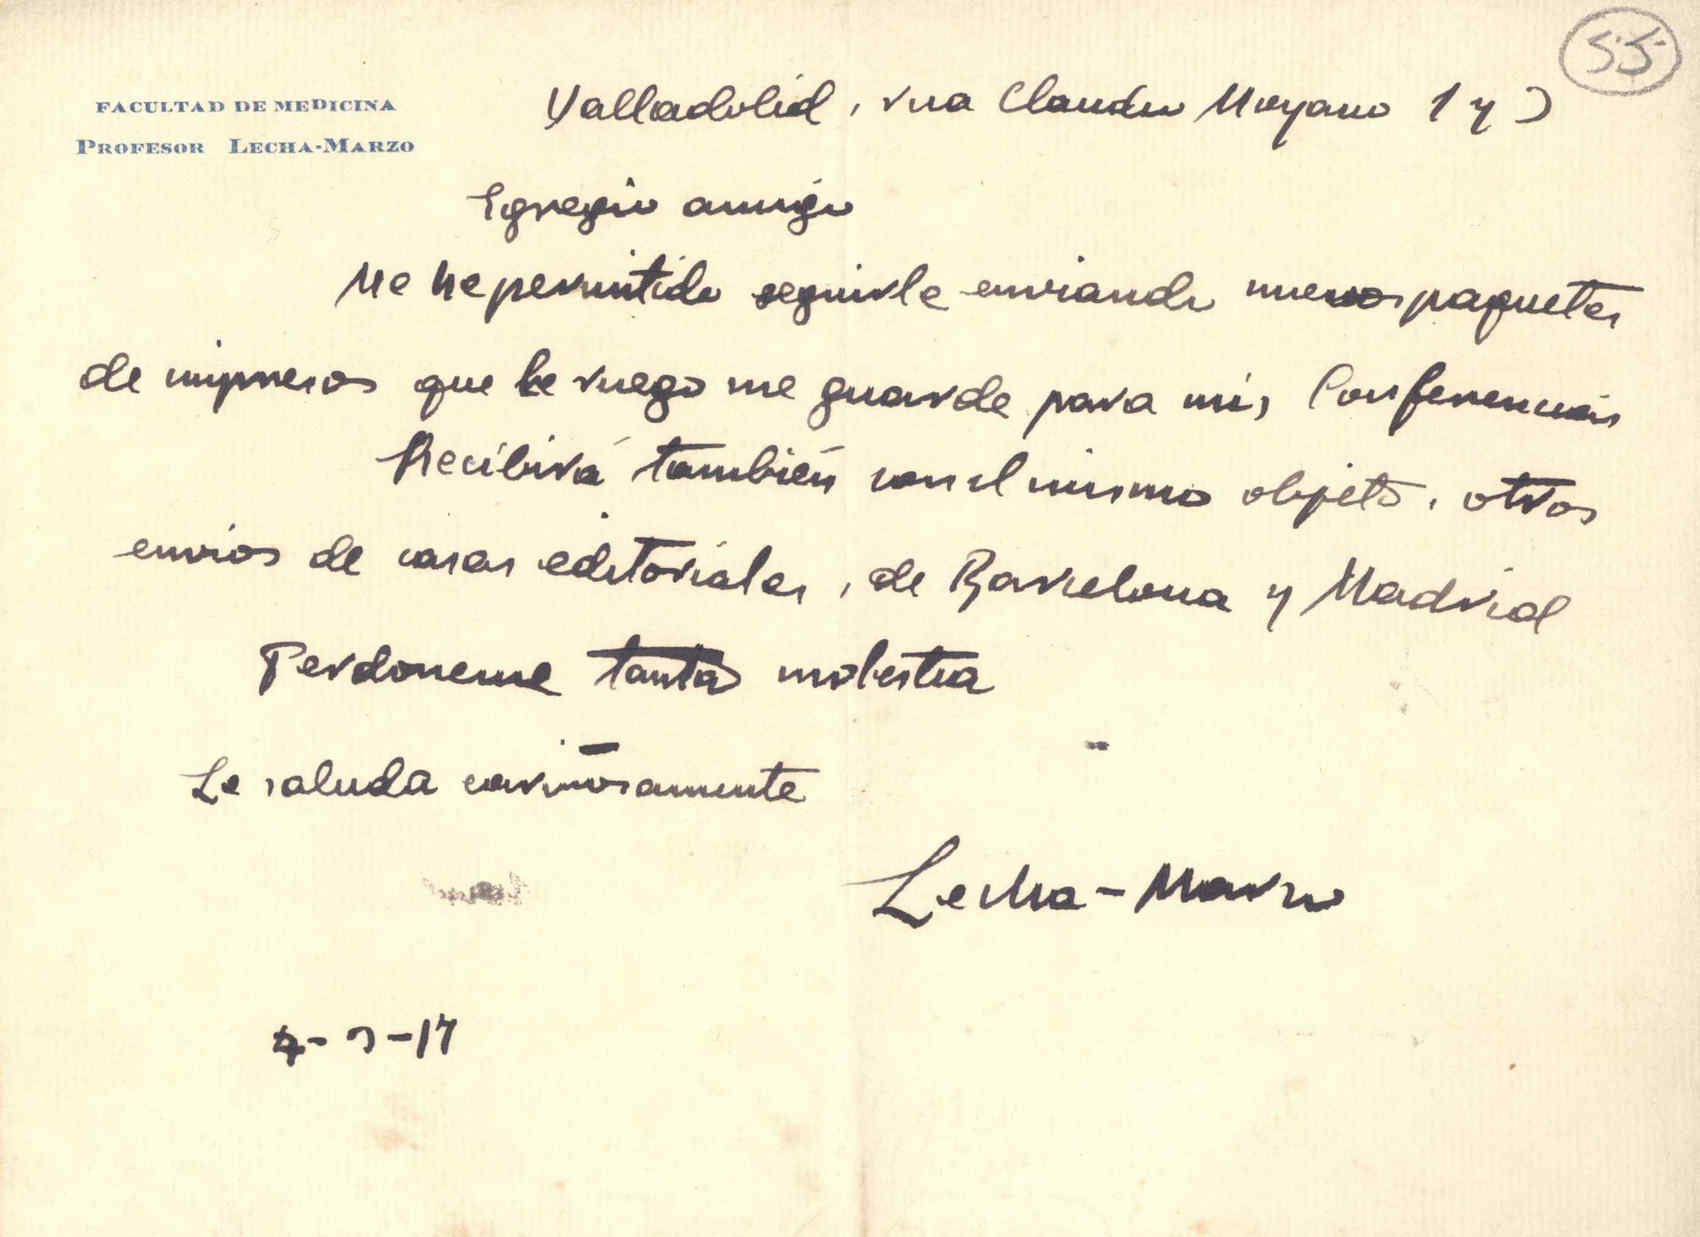 55
FACULTAD DE MEDICINA
PROFESOR LECHA-MARZO
Valladolid, rua Claudio Moyano 1 y 3
Egregio amigo
Me he permitido seguirle enviando nuevos paquetes
de impresos que le ruego me guarde para mis Conferencias
Recibirá también con el mismo objeto, otros
envios de casas editoriales, de Barcelona y Madrid
Perdoneme tanta molestia
Le saluda cariñosamente
Lecha-Marzo
7-3-17